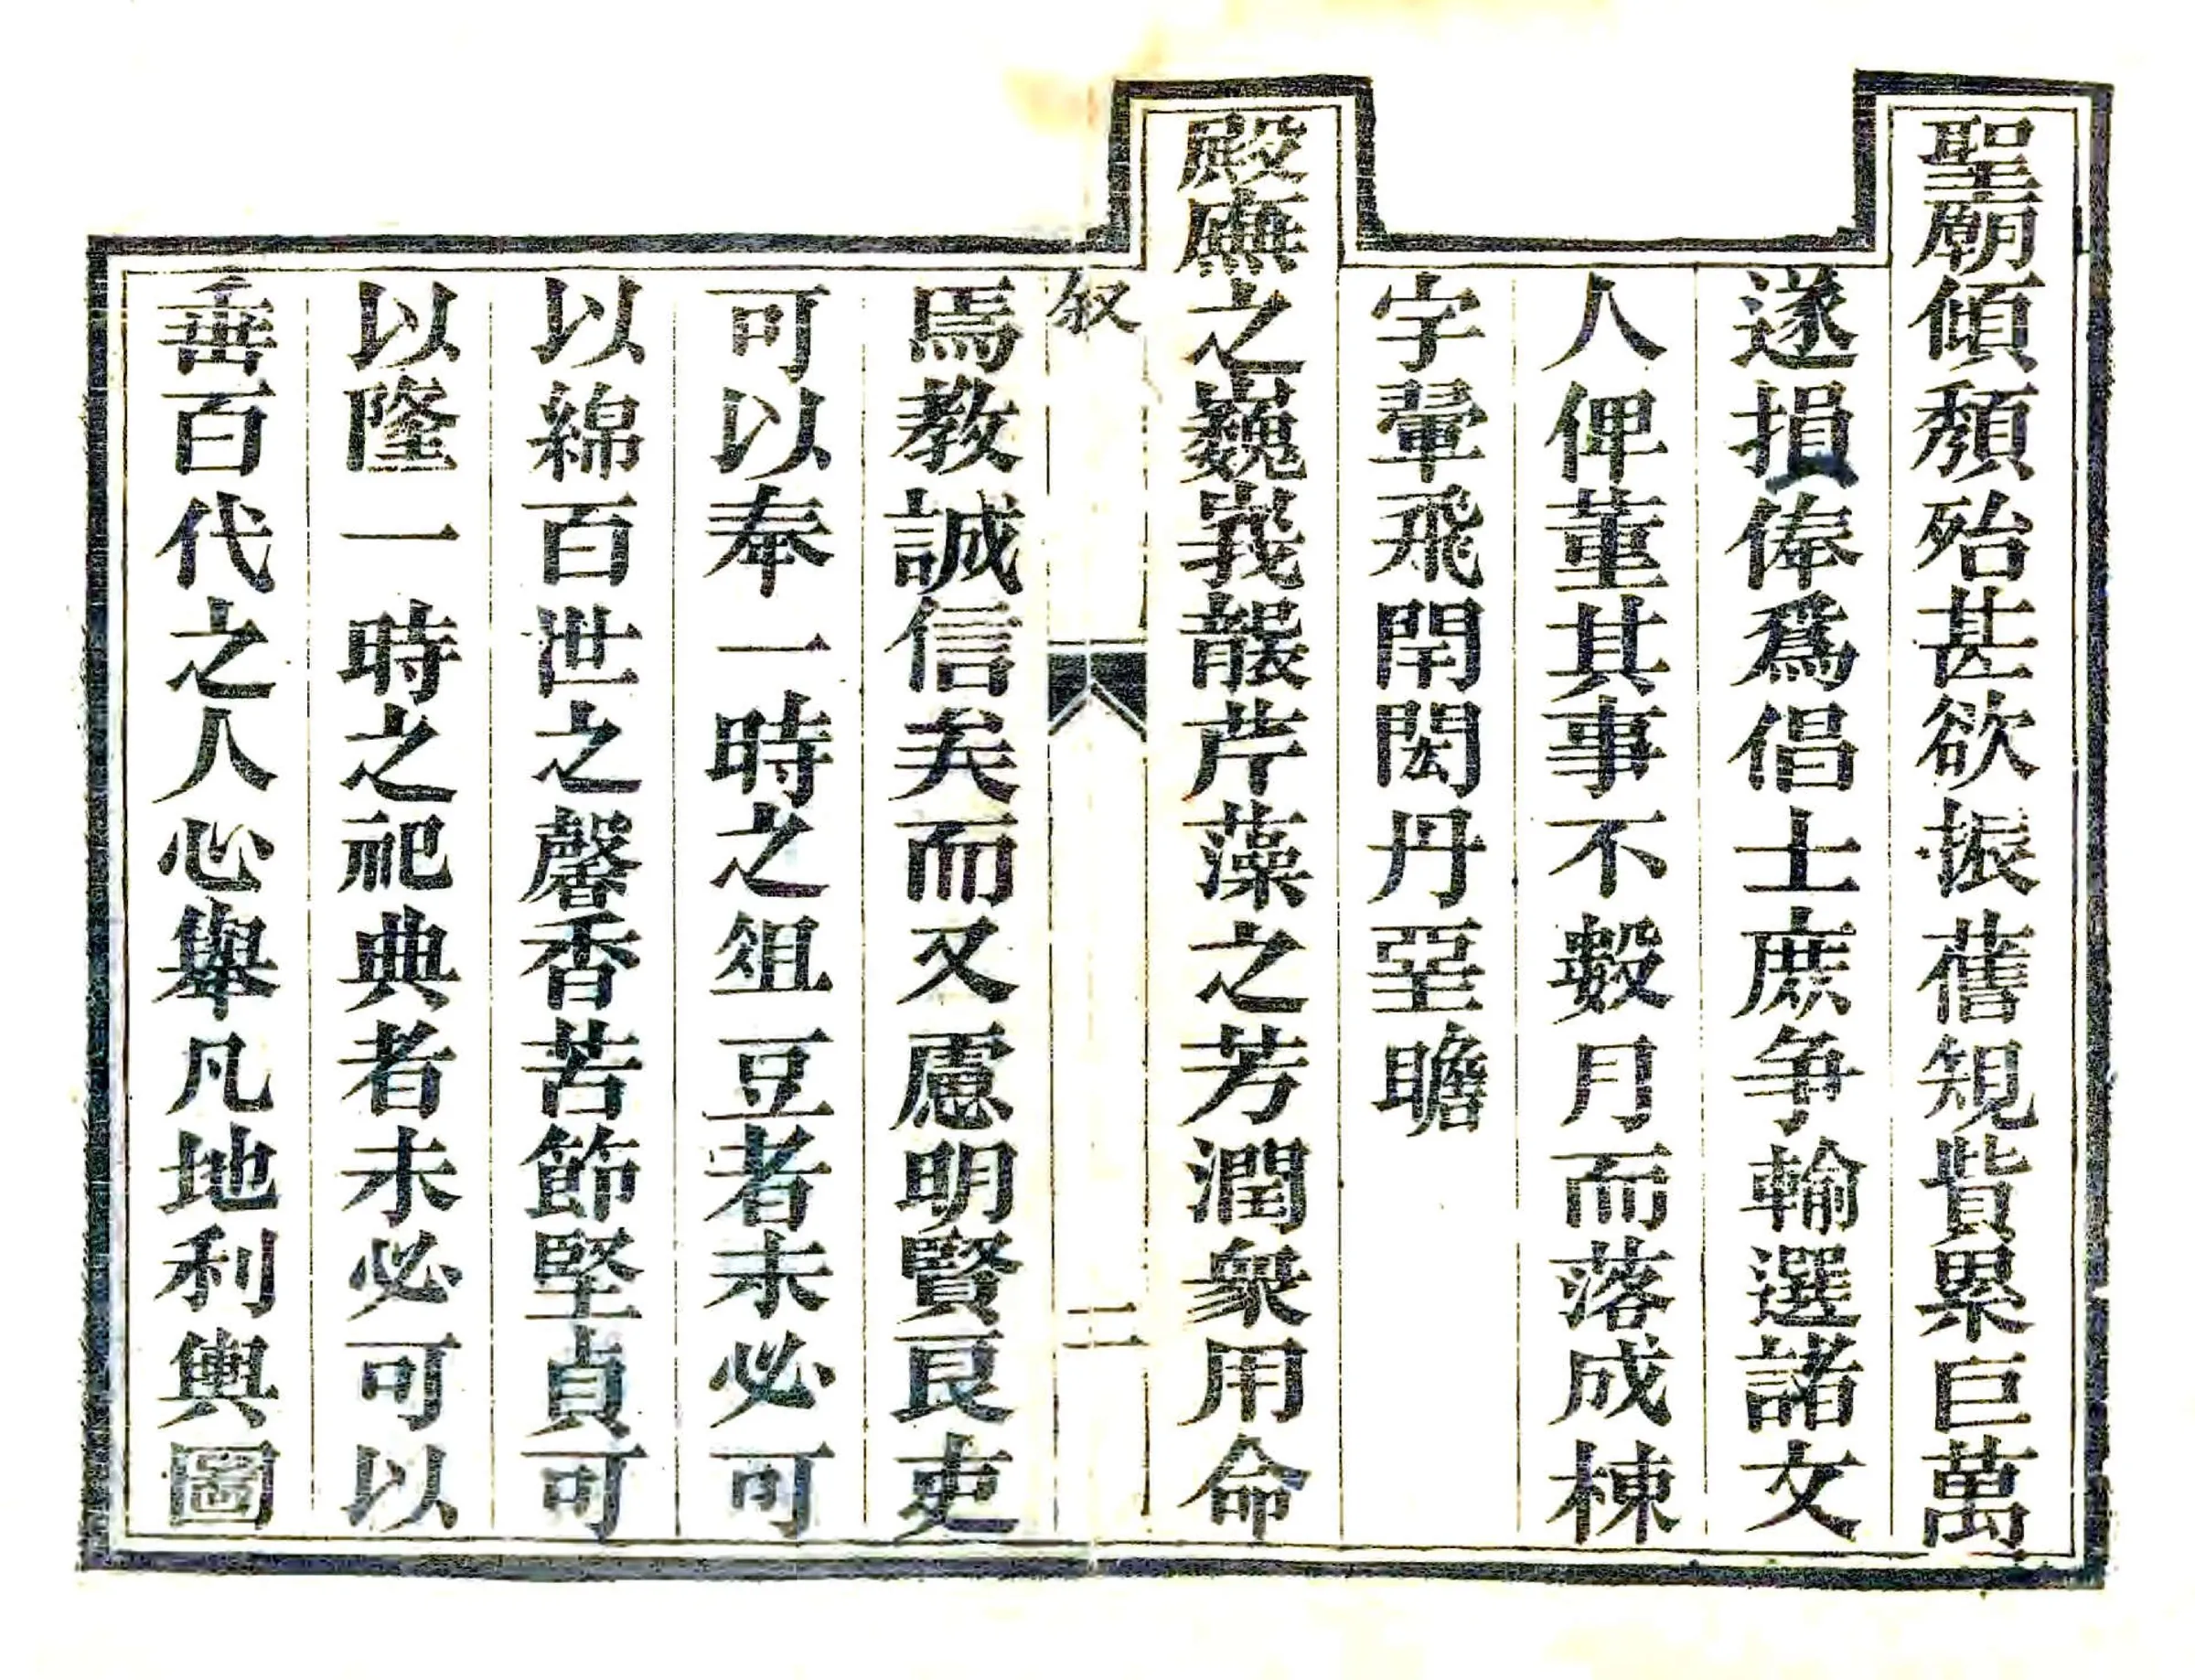 聖廟傾頹殆甚欲振舊規貲累巨萬
遂損俸爲倡士庶争輸選諸文
人俾董其事不數月而落成棟
字翬飛閈閎丹堊瞻
殿廡之巍峩㲯芹藻之芳潤衆用命
敘
二
焉教誠信矣而又慮明賢良吏
可以奉一時之俎豆者未必可
以綿百世之馨香苦節堅貞可
以隆一時之祀典者未必可以
垂百代之人心舉凡地利輿圖